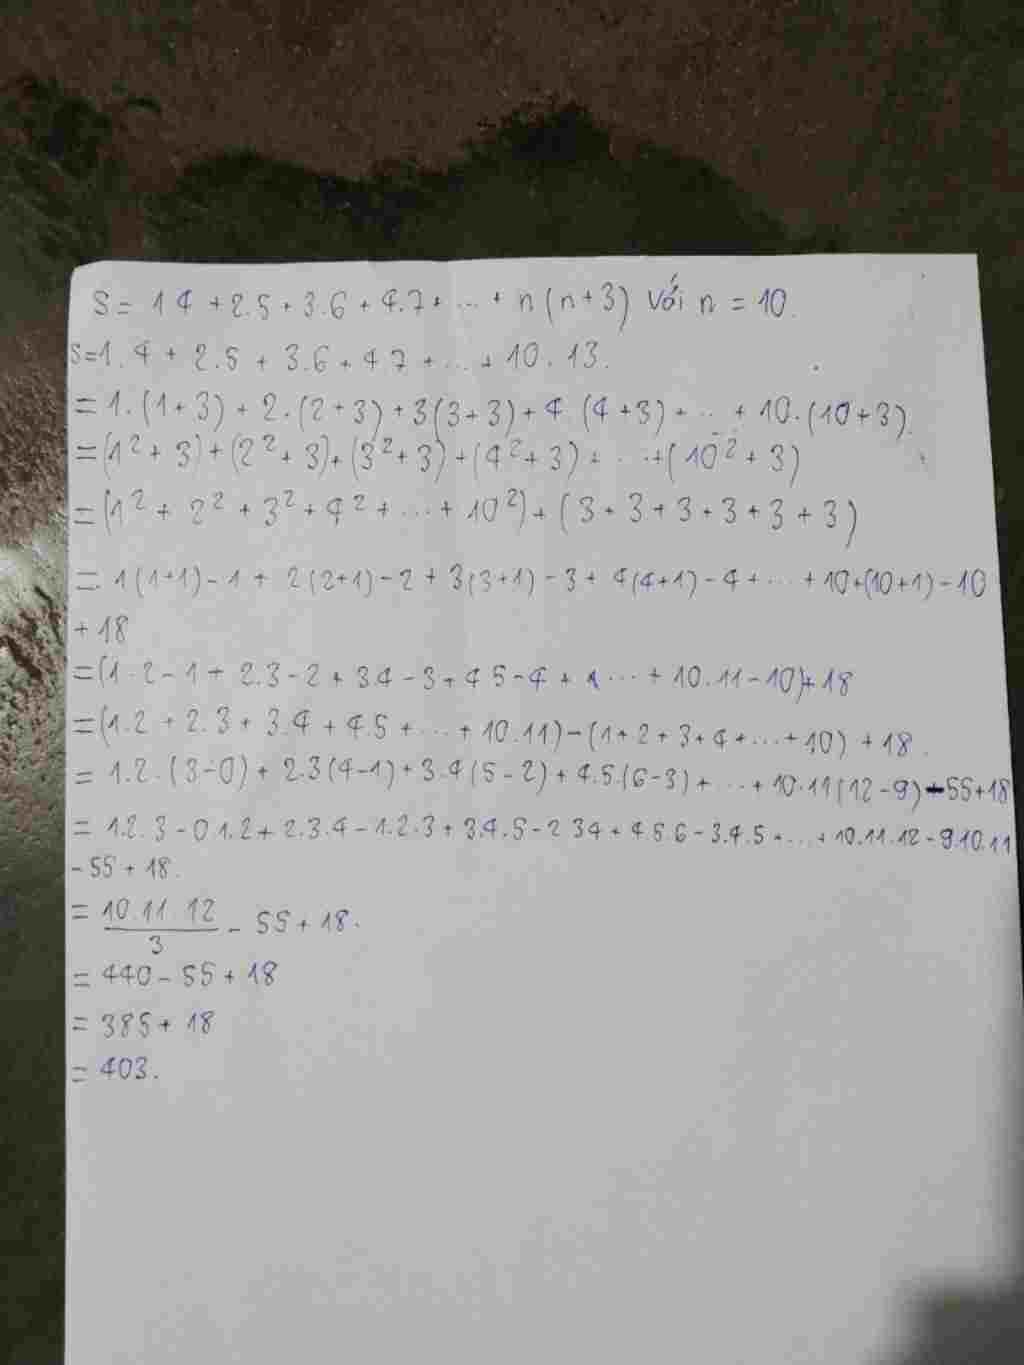 S = 1 4 + 2.5 + 3.6 + 4.7 + ... + n(n+3) Với n = 10.
S=1.4 + 2.5 + 3.6 + 4 7 + ... + 10.13.
= 1.(1+3) + 2.(2+3) + 3(3+3) + 4 (4+3) + ... + 10.(10+3).
= (1² + 3) + (2² + 3) + (3² + 3) + (4² + 3) + ... + (10² + 3)
= (1² + 2² + 3² + 4² + ... + 10²) + (3 + 3 + 3 + 3 + 3 + 3)
= 1(1+1) - 1 + 2(2+1) - 2 + 3(3+1) - 3 + 4(4+1) - 4 + ... + 10+(10+1) - 10
+ 18
= (1.2 - 1 + 2.3 - 2 + 3.4 - 3 + 4 5 - 4 + ... + 10.11 - 10) + 18
= (1.2 + 2.3 + 3.4 + 4.5 + ... + 10.11) - (1 + 2 + 3 + 4 + ... + 10) + 18.
= 1.2.(3-0) + 2.3(4-1) + 3.4(5-2) + 4.5.(6-3) + ... + 10.11(12-9) - 55 + 18
= 1.2.3 - 0.1.2 + 2.3.4 - 1.2.3 + 3.4.5 - 2 3 4 + 4 5.6 - 3.4.5 + ... + 10.11.12 - 9.10.11
- 55 + 18.
= 10.11.12/3 - 55 + 18.
= 440 - 55 + 18
= 385 + 18
= 403.